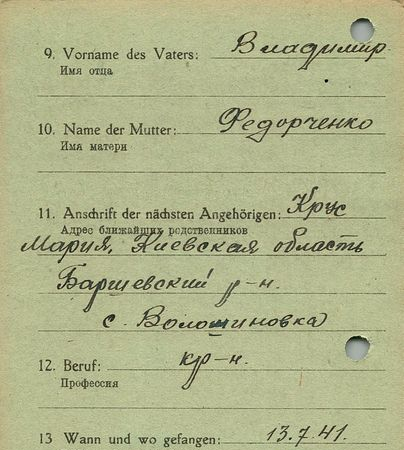 9. Vorname des Vaters: Владимир
Имя отца
10. Name der Mutter: Федорченко
Имя матери
11. Anschrift der nächsten Angehörigen: Крус
Адрес ближайших родственников
Мария, Киевская область
Баршевский р-н.
с. Волошиновка
12. Beruf: кр-н.
Профессия
13 Wann und wo gefangen: 13.7.41.